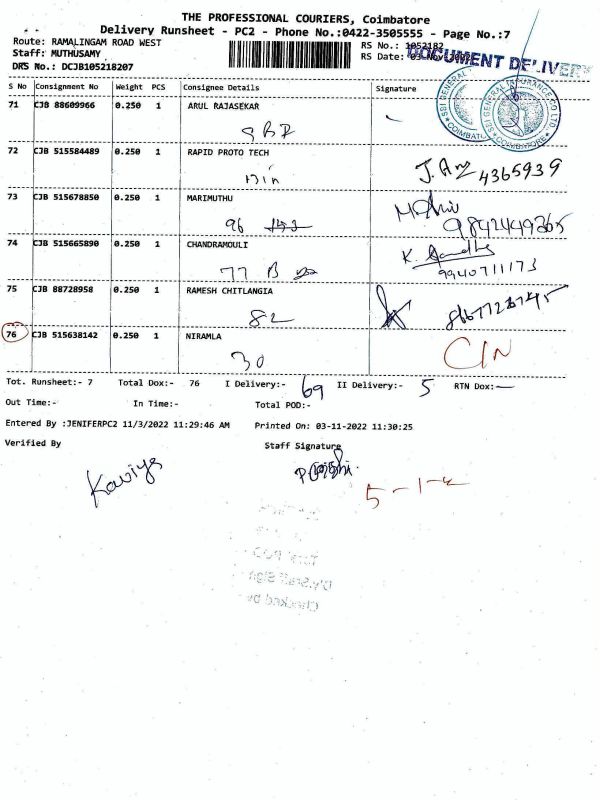 THE PROFESSIONAL COURIERS, Coimbatore
Delivery Runsheet - PC2 - Phone No.:0422-3505555 - Page No.:7
Route: RAMALINGAM ROAD WEST
RS No.: 1052182
Staff: MUTHUSAMY
RS Date: 03-Nov-2022
DOCUMENT DELIVERY
DRS No.: DCJB105218207
S No Consignment No Weight PCS Consignee Details Signature
71 CJB 88609966 0.250 1 ARUL RAJASEKAR
SBI GENERAL INSURANCE CO LTD
COIMBATORE
72 CJB 515584489 0.250 1 RAPID PROTO TECH
4365939
73 CJB 515678850 0.250 1 MARIMUTHU
96
9842449365
74 CJB 515665890 0.250 1 CHANDRAMOULI
77 B
K.
9940711173
75 CJB 88728958 0.250 1 RAMESH CHITLANGIA
82
76 CJB 515638142 0.250 1 NIRAMLA
30
CIN
Tot. Runsheet:- 7 Total Dox:- 76 I Delivery:- 69 II Delivery:- 5 RTN Dox:-
Out Time:- In Time:- Total POD:-
Entered By :JENIFERPC2 11/3/2022 11:29:46 AM Printed On: 03-11-2022 11:30:25
Verified By Staff Signature
Kaviya
5-1-
Total POD
Div.Staff Sign
Checked by